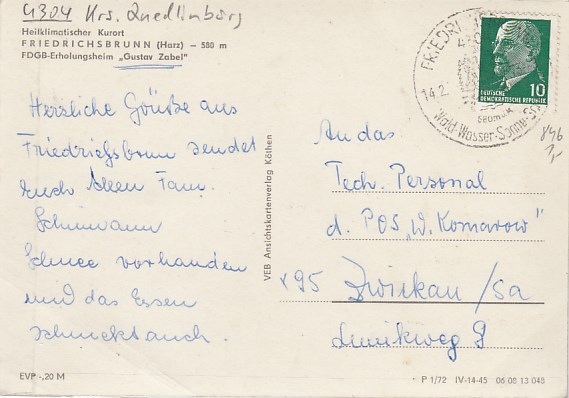 4304 Krs. Quedlimburg
Heilklimatischer Kurort
FRIEDRICHSBRUNN (Harz) – 580 m
FDGB-Erholungsheim „Gustav Zabel"
Herzliche Grüße aus
Friedrichsbrunn sendet
Euch Allen Fam.
Schumann
Schnee vorhanden
und das Essen
schmeckt auch.
EVP -,20 M
VEB Ansichtskartenverlag Köthen
FRIEDRI
14.2
580m ü.M
Wald-Wasser-Sonne-S
DEUTSCHE
DEMOKRATISCHE REPUBLIK
10
846
An das
Tech. Personal
d. POS „W. Komarow"
x 95 Zwickau/Sa
P 1/72 IV-14-45 06 08 13 048